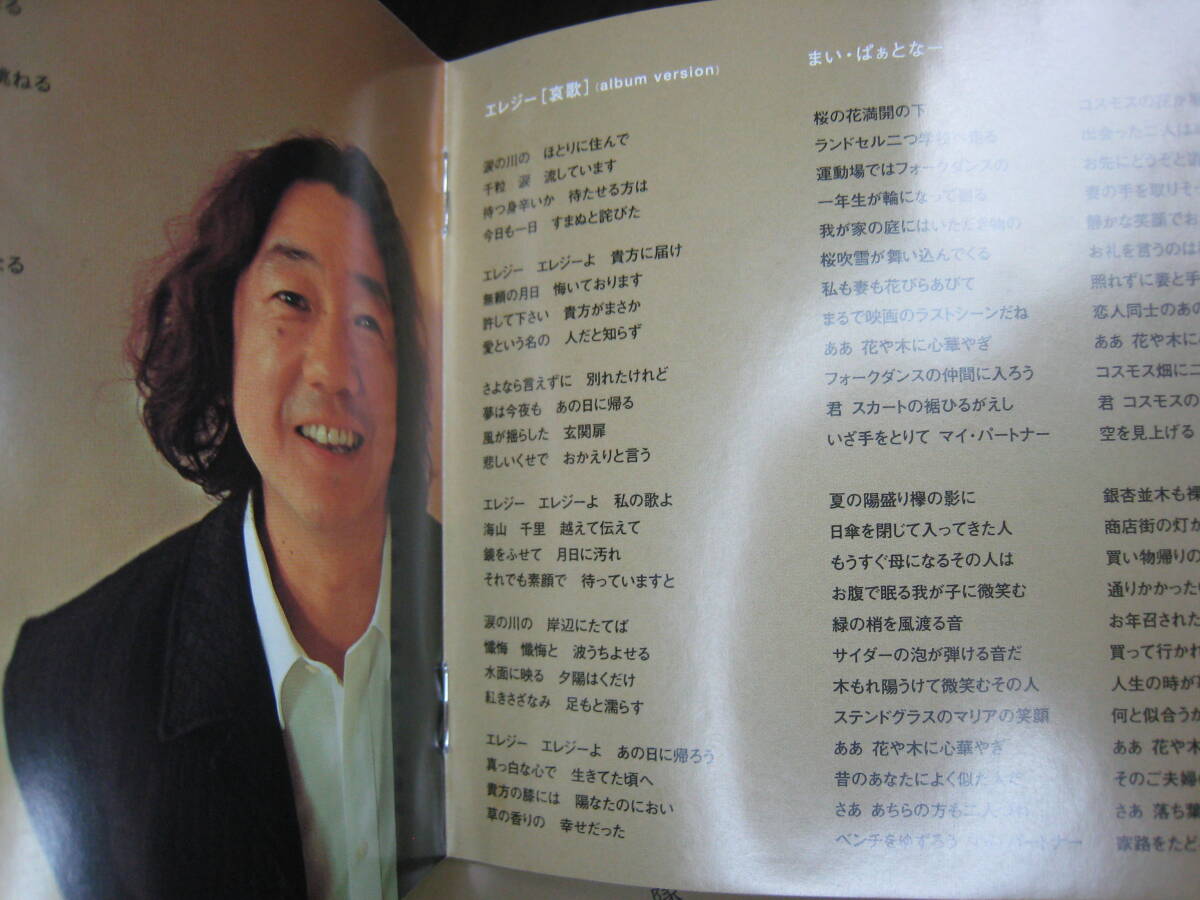 る
跳ねる
なる
エレジー［哀歌］(album version)
涙の川の　ほとりに住んで
千粒　涙　流しています
待つ身辛いか　待たせる方は
今日も一日　すまぬと詫びた
エレジー　エレジーよ　貴方に届け
無頼の月日　悔いております
許して下さい　貴方がまさか
愛という名の　人だと知らず
さよなら言えずに　別れたけれど
夢は今夜も　あの日に帰る
風が揺らした　玄関扉
悲しいくせで　おかえりと言う
エレジー　エレジーよ　私の歌よ
海山　千里　越えて伝えて
鏡をふせて　月日に汚れ
それでも素顔で　待っていますと
涙の川の　岸辺にたてば
懺悔　懺悔と　波うちよせる
水面に映る　夕陽はくだけ
紅きさざなみ　足もと濡らす
エレジー　エレジーよ　あの日に帰ろう
真っ白な心で　生きてた頃へ
貴方の膝には　陽なたのにおい
草の香りの　幸せだった
まい・ぱぁとなー
桜の花満開の下
ランドセル二つ学校へ走る
運動場ではフォークダンスの
一年生が輪になって廻る
我が家の庭にはいただき物の
桜吹雪が舞い込んでくる
私も妻も花びらあびて
まるで映画のラストシーンだね
ああ 花や木に心華やぎ
フォークダンスの仲間に入ろう
君 スカートの裾ひるがえし
いざ手をとりて マイ・パートナー
夏の陽盛り欅の影に
日傘を閉じて入ってきた人
もうすぐ母になるその人は
お腹で眠る我が子に微笑む
緑の梢を風渡る音
サイダーの泡が弾ける音だ
木もれ陽うけて微笑むその人
ステンドグラスのマリアの笑顔
ああ 花や木に心華やぎ
昔のあなたによく似た人だ
さあ あちらの方も二人づれ
ベンチをゆずろう マイ・パートナー
コスモスの花が
出会った二人は
お先にどうぞと
妻の手を取りそ
静かな笑顔でお
お礼を言うのは
照れずに妻と手
恋人同士のあの
ああ 花や木に心
コスモス畑に二
君 コスモスの
空を見上げる
銀杏並木も裸
商店街の灯が
買い物帰りの
通りかかった
お年召された
買って行かれ
人生の時が
何と似合うか
ああ 花や木
そのご夫婦
さあ 落ち葉
家路をたど
隊